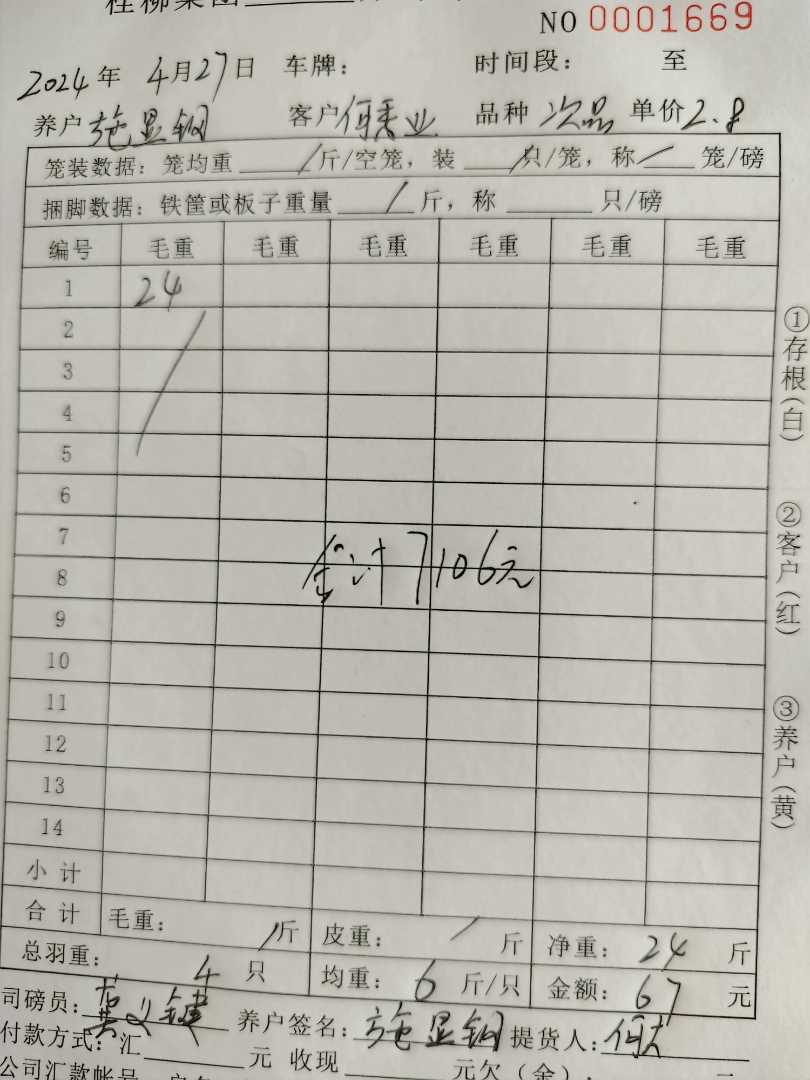 桂柳集团
NO 0001669
2024年 4月27日 车牌： 时间段： 至
养户 施显钢 客户 何秀业 品种 次品 单价 2.8
笼装数据：笼均重 / 斤/空笼，装 / 只/笼，称 / 笼/磅
捆脚数据：铁筐或板子重量 / 斤，称 只/磅
编号 毛重 毛重 毛重 毛重 毛重 毛重
1 24
2
3
4
5
6
7
合计7106元
8
9
10
11
12
13
14
小计
合计 毛重： / 斤 皮重： / 斤 净重： 24 斤
总羽重： 4 只 均重： 6 斤/只 金额： 67 元
司磅员： 黄义健 养户签名： 施显钢 提货人： 何
付款方式：汇 元 收现 元欠（余）：
公司汇款帐号
①存根(白)
②客户(红)
③养户(黄)